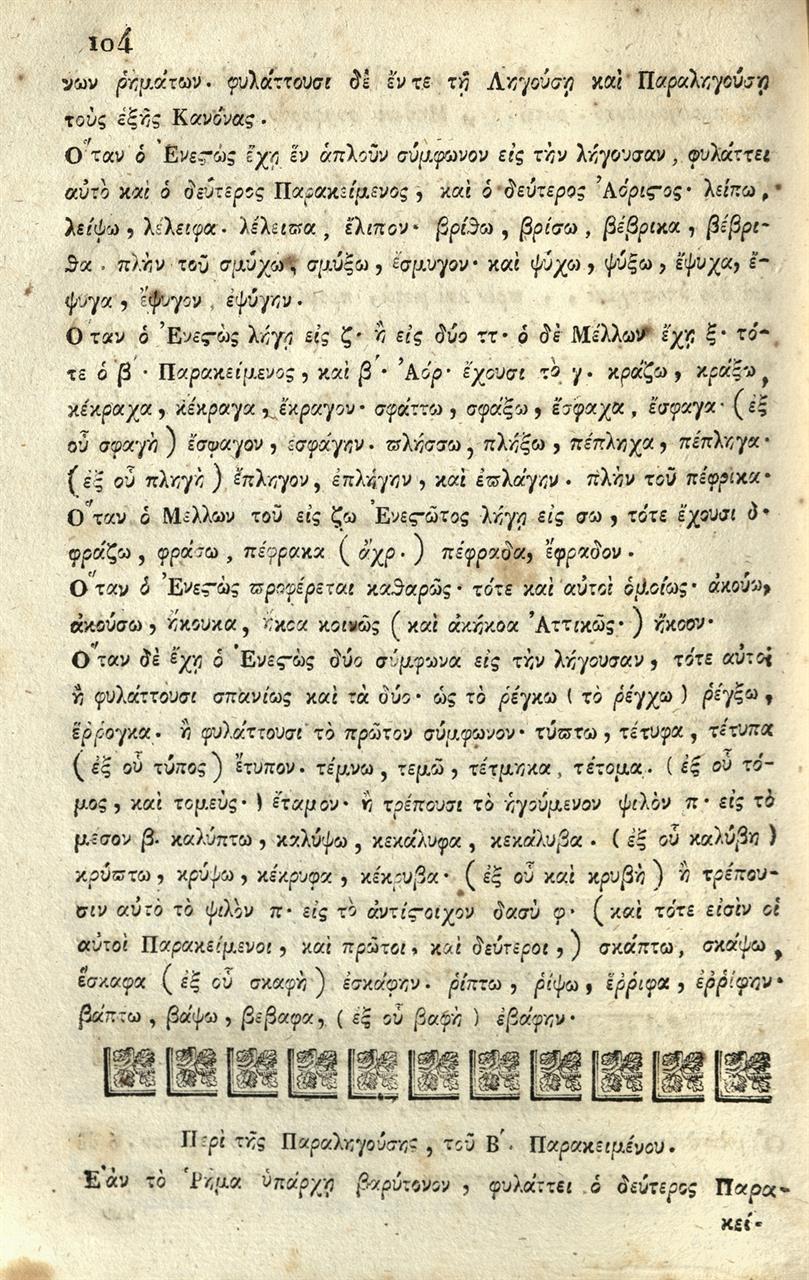 104
νων ῥημάτων. φυλάττουσι δὲ ἔν τε τῇ Ληγούσῃ καὶ Παραληγούσῃ
τοὺς ἑξῆς Κανόνας.
Ὅταν ὁ Ἐνεϛὼς ἔχῃ ἓν ἁπλοῦν σύμφωνον εἰς τὴν λήγουσαν, φυλάττει
αὐτὸ καὶ ὁ δεύτερος Παρακείμενος, καὶ ὁ δεύτερος Ἀόριϛος· λείπω,
λείψω, λέλειφα. λέλειπα, ἔλιπον· βρίθω, βρίσω, βέβρικα, βέβρι-
θα. πλὴν τοῦ σμύχω, σμύξω, ἔσμυγον· καὶ ψύχω, ψύξω, ἔψυχα, ἔ-
ψυγα, ἔψυγον, ἐψύγην.
Ὅταν ὁ Ἐνεϛὼς λήγῃ εἰς ζ· ἢ εἰς δύο ττ· ὁ δὲ Μέλλων ἔχῃ ξ· τό-
τε ὁ β′· Παρακείμενος, καὶ β′· Ἀόρ· ἔχουσι τὸ γ. κράζω, κράξω,
κέκραχα, κέκραγα, ἔκραγον· σφάττω, σφάξω, ἔσφαχα, ἔσφαγα· (ἐξ
οὗ σφαγὴ) ἔσφαγον, ἐσφάγην. πλήσσω, πλήξω, πέπληχα, πέπληγα·
(ἐξ οὗ πληγὴ) ἔπληγον, ἐπλήγην, καὶ ἐπλάγην. πλὴν τοῦ πέφρικα·
Ὅταν ὁ Μέλλων τοῦ εἰς ζω Ἐνεϛῶτος λήγῃ εἰς σω, τότε ἔχουσι δ·
φράζω, φράσω, πέφρακα (ἄχρ.) πέφραδα, ἔφραδον.
Ὅταν ὁ Ἐνεϛὼς προφέρεται καθαρῶς· τότε καὶ αὐτοὶ ὁμοίως· ἀκούω,
ἀκούσω, ἤκουκα, ἤκοα κοινῶς (καὶ ἀκήκοα Ἀττικῶς·) ἤκοον·
Ὅταν δὲ ἔχῃ ὁ Ἐνεϛὼς δύο σύμφωνα εἰς τὴν λήγουσαν, τότε αὐτοὶ
ἢ φυλάττουσι σπανίως καὶ τὰ δύο· ὡς τὸ ῥέγκω (τὸ ῥέγχω) ῥέγξω,
ἔῤῥογκα. ἢ φυλάττουσι τὸ πρῶτον σύμφωνον· τύπτω, τέτυφα, τέτυπα
(ἐξ οὗ τύπος) ἔτυπον. τέμνω, τεμῶ, τέτμηκα, τέτομα. (ἐξ οὗ τό-
μος, καὶ τομεύς·) ἔταμον· ἢ τρέπουσι τὸ ἡγούμενον ψιλὸν π· εἰς τὸ
μέσον β. καλύπτω, καλύψω, κεκάλυφα, κεκάλυβα. (ἐξ οὗ καλύβη)
κρύπτω, κρύψω, κέκρυφα, κέκρυβα· (ἐξ οὗ καὶ κρυβὴ) ἢ τρέπου-
σιν αὐτὸ τὸ ψιλὸν π· εἰς τὸ ἀντίϛοιχον δασὺ φ· (καὶ τότε εἰσὶν οἱ
αὐτοὶ Παρακείμενοι, καὶ πρῶτοι, καὶ δεύτεροι,) σκάπτω, σκάψω,
ἔσκαφα (ἐξ οὗ σκαφὴ) ἐσκάφην. ῥίπτω, ῥίψω, ἔῤῥιφα, ἐῤῥίφην·
βάπτω, βάψω, βεβαφα, (ἐξ οὗ βαφὴ) ἐβάφην·
Περὶ τῆς Παραληγούσης, τοῦ Β′. Παρακειμένου.
Ἐὰν τὸ Ῥῆμα ὑπάρχῃ βαρύτονον, φυλάττει ὁ δεύτερος Παρα-
κεί-